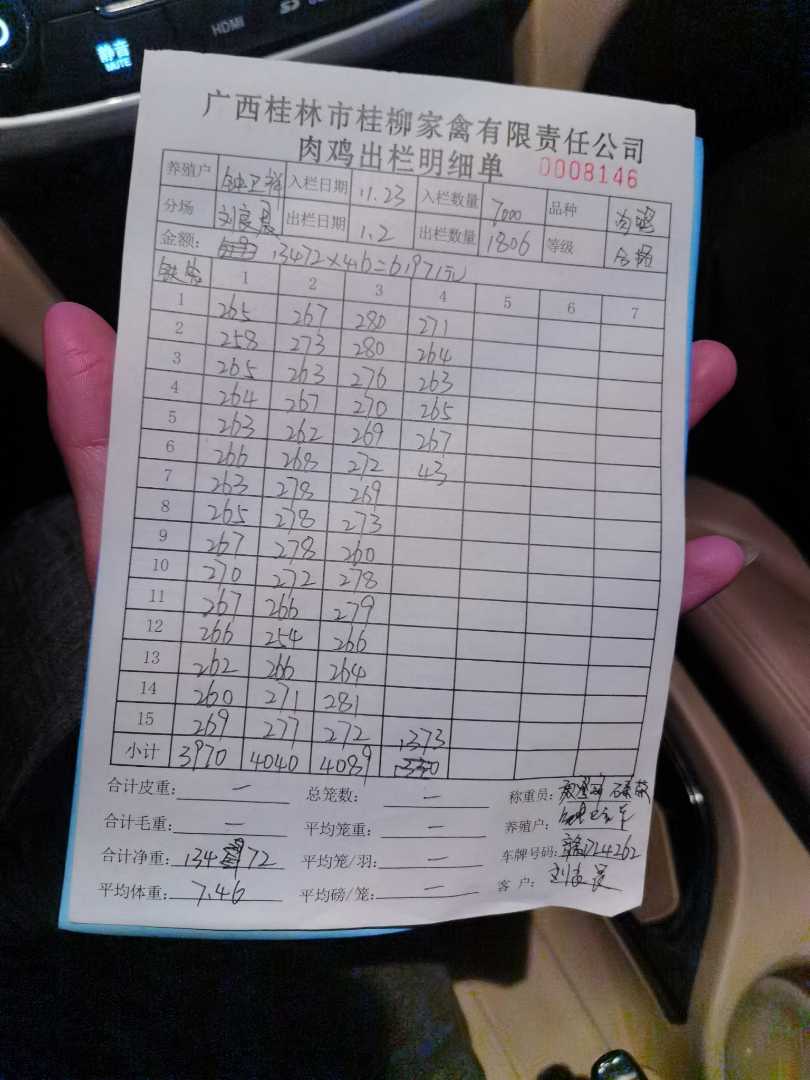 静音
MUTE
HDMI
广西桂林市桂柳家禽有限责任公司
肉鸡出栏明细单 0008146
养殖户 入栏日期 11.23 入栏数量 7000 品种 肉鸡
分场 刘良晨 出栏日期 1.2 出栏数量 1806 等级 合格
金额: 13472×4.6=61971元
1 2 3 4 5 6 7
1 265 267 280 271
2 258 273 280 264
3 265 263 276 263
4 264 267 270 265
5 263 262 269 267
6 266 268 272 43
7 263 278 269
8 265 278 273
9 267 278 260
10 270 272 278
11 267 266 279
12 266 254 266
13 262 266 264
14 260 271 281
15 269 277 272 1373
小计 3970 4040 4089
合计皮重: — 总笼数: — 称重员:
合计毛重: — 平均笼重: — 养殖户:
合计净重: 13472 平均笼/羽: — 车牌号码:
平均体重: 7.46 平均磅/笼: — 客户: